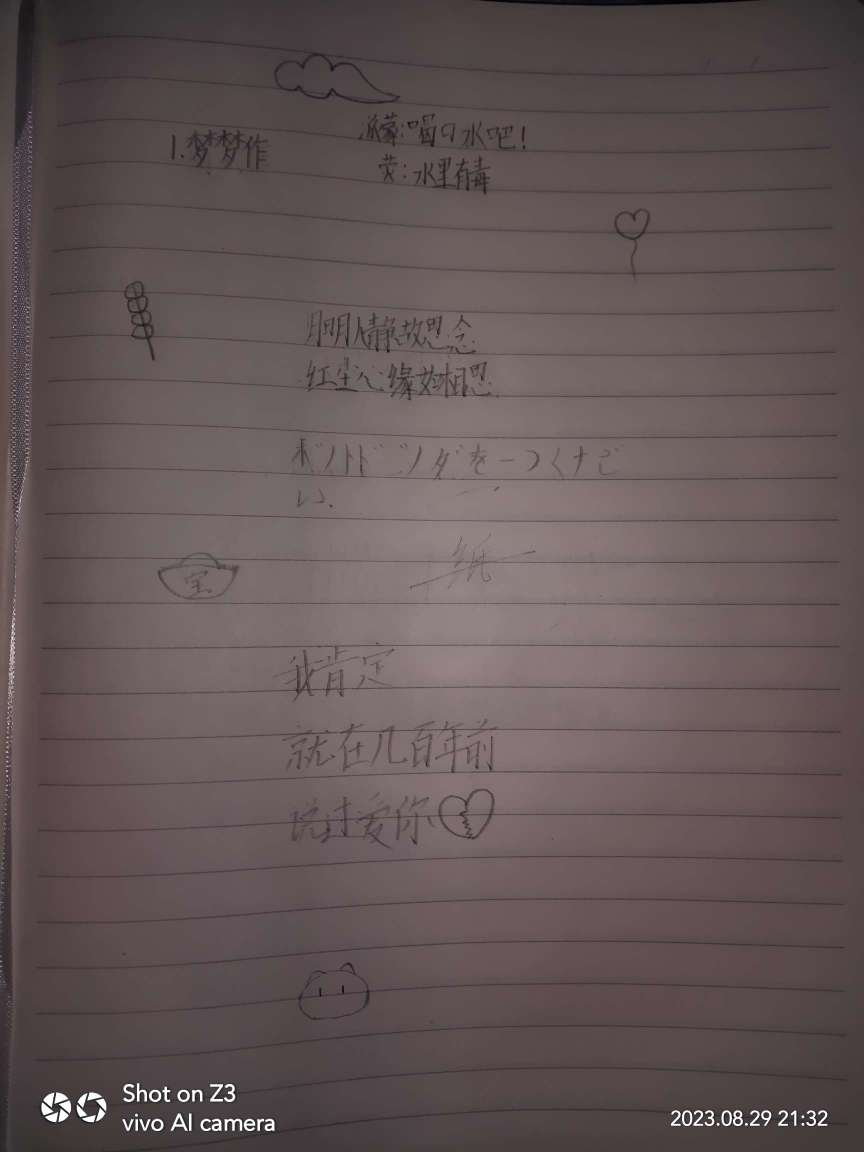 1.梦梦作
派蒙:喝口水吧!
荧:水里有毒
月明人静故思念
红尘心缘如相思
ください.
一纸
宝
我肯定
就在几百年前
说过爱你
Shot on Z3
vivo AI camera
2023.08.29 21:32